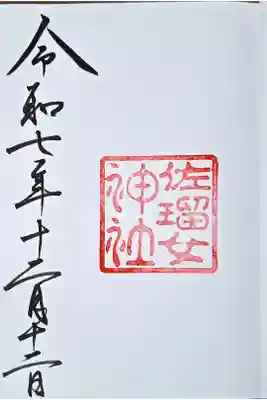 佐瑠女
神社
令和七年十二月十二日